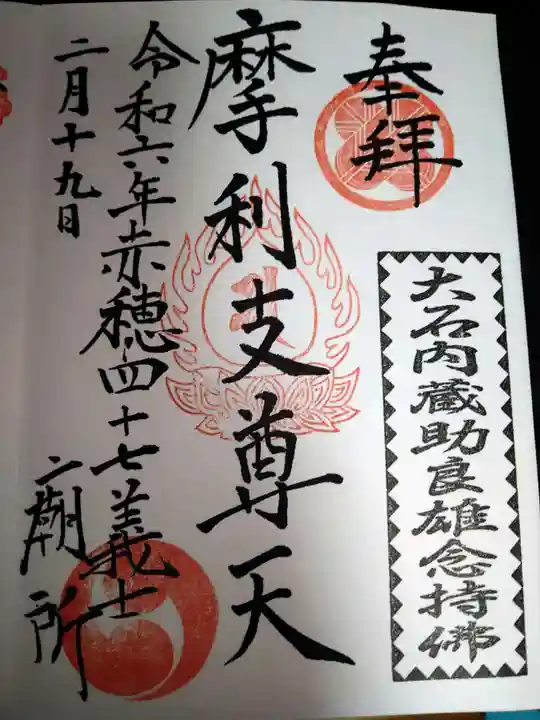 奉拝
大石内蔵助良雄念持佛
摩利支尊天
令和六年赤穂四十七義士
二月十九日
二廟所